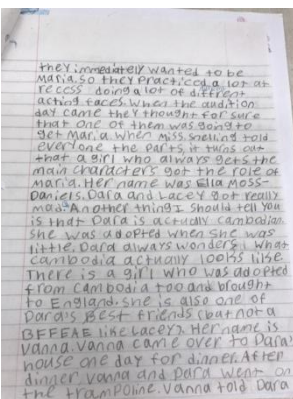 they immediately wanted to be
Maria. so they practiced a lot at
recess doing a lot of diffrent
acting faces. when the audition
day came they thought for sure
that one of them was going to
get Maria. when Miss. snelling told
everyone the parts, it turns out
that a girl who always gets the
main characters got the role of
Maria. Her name was Ella Moss-
Daniels. Dara and Lacey got really
mad. Another thing I should tell you
is that Dara is actually cambodian.
she was adopted when she was
little. Dara always wonders what
cambodia actually looks like.
There is a girl who was adopted
from cambodia too and brought
to England. she is also one of
Dara's Best friends (but not a
BFFEAE like Lacey). Her name is
vanna. vanna came over to Dara's
house one day for dinner. After
dinner vanna and Dara went on
the trampoline. vanna told Dara